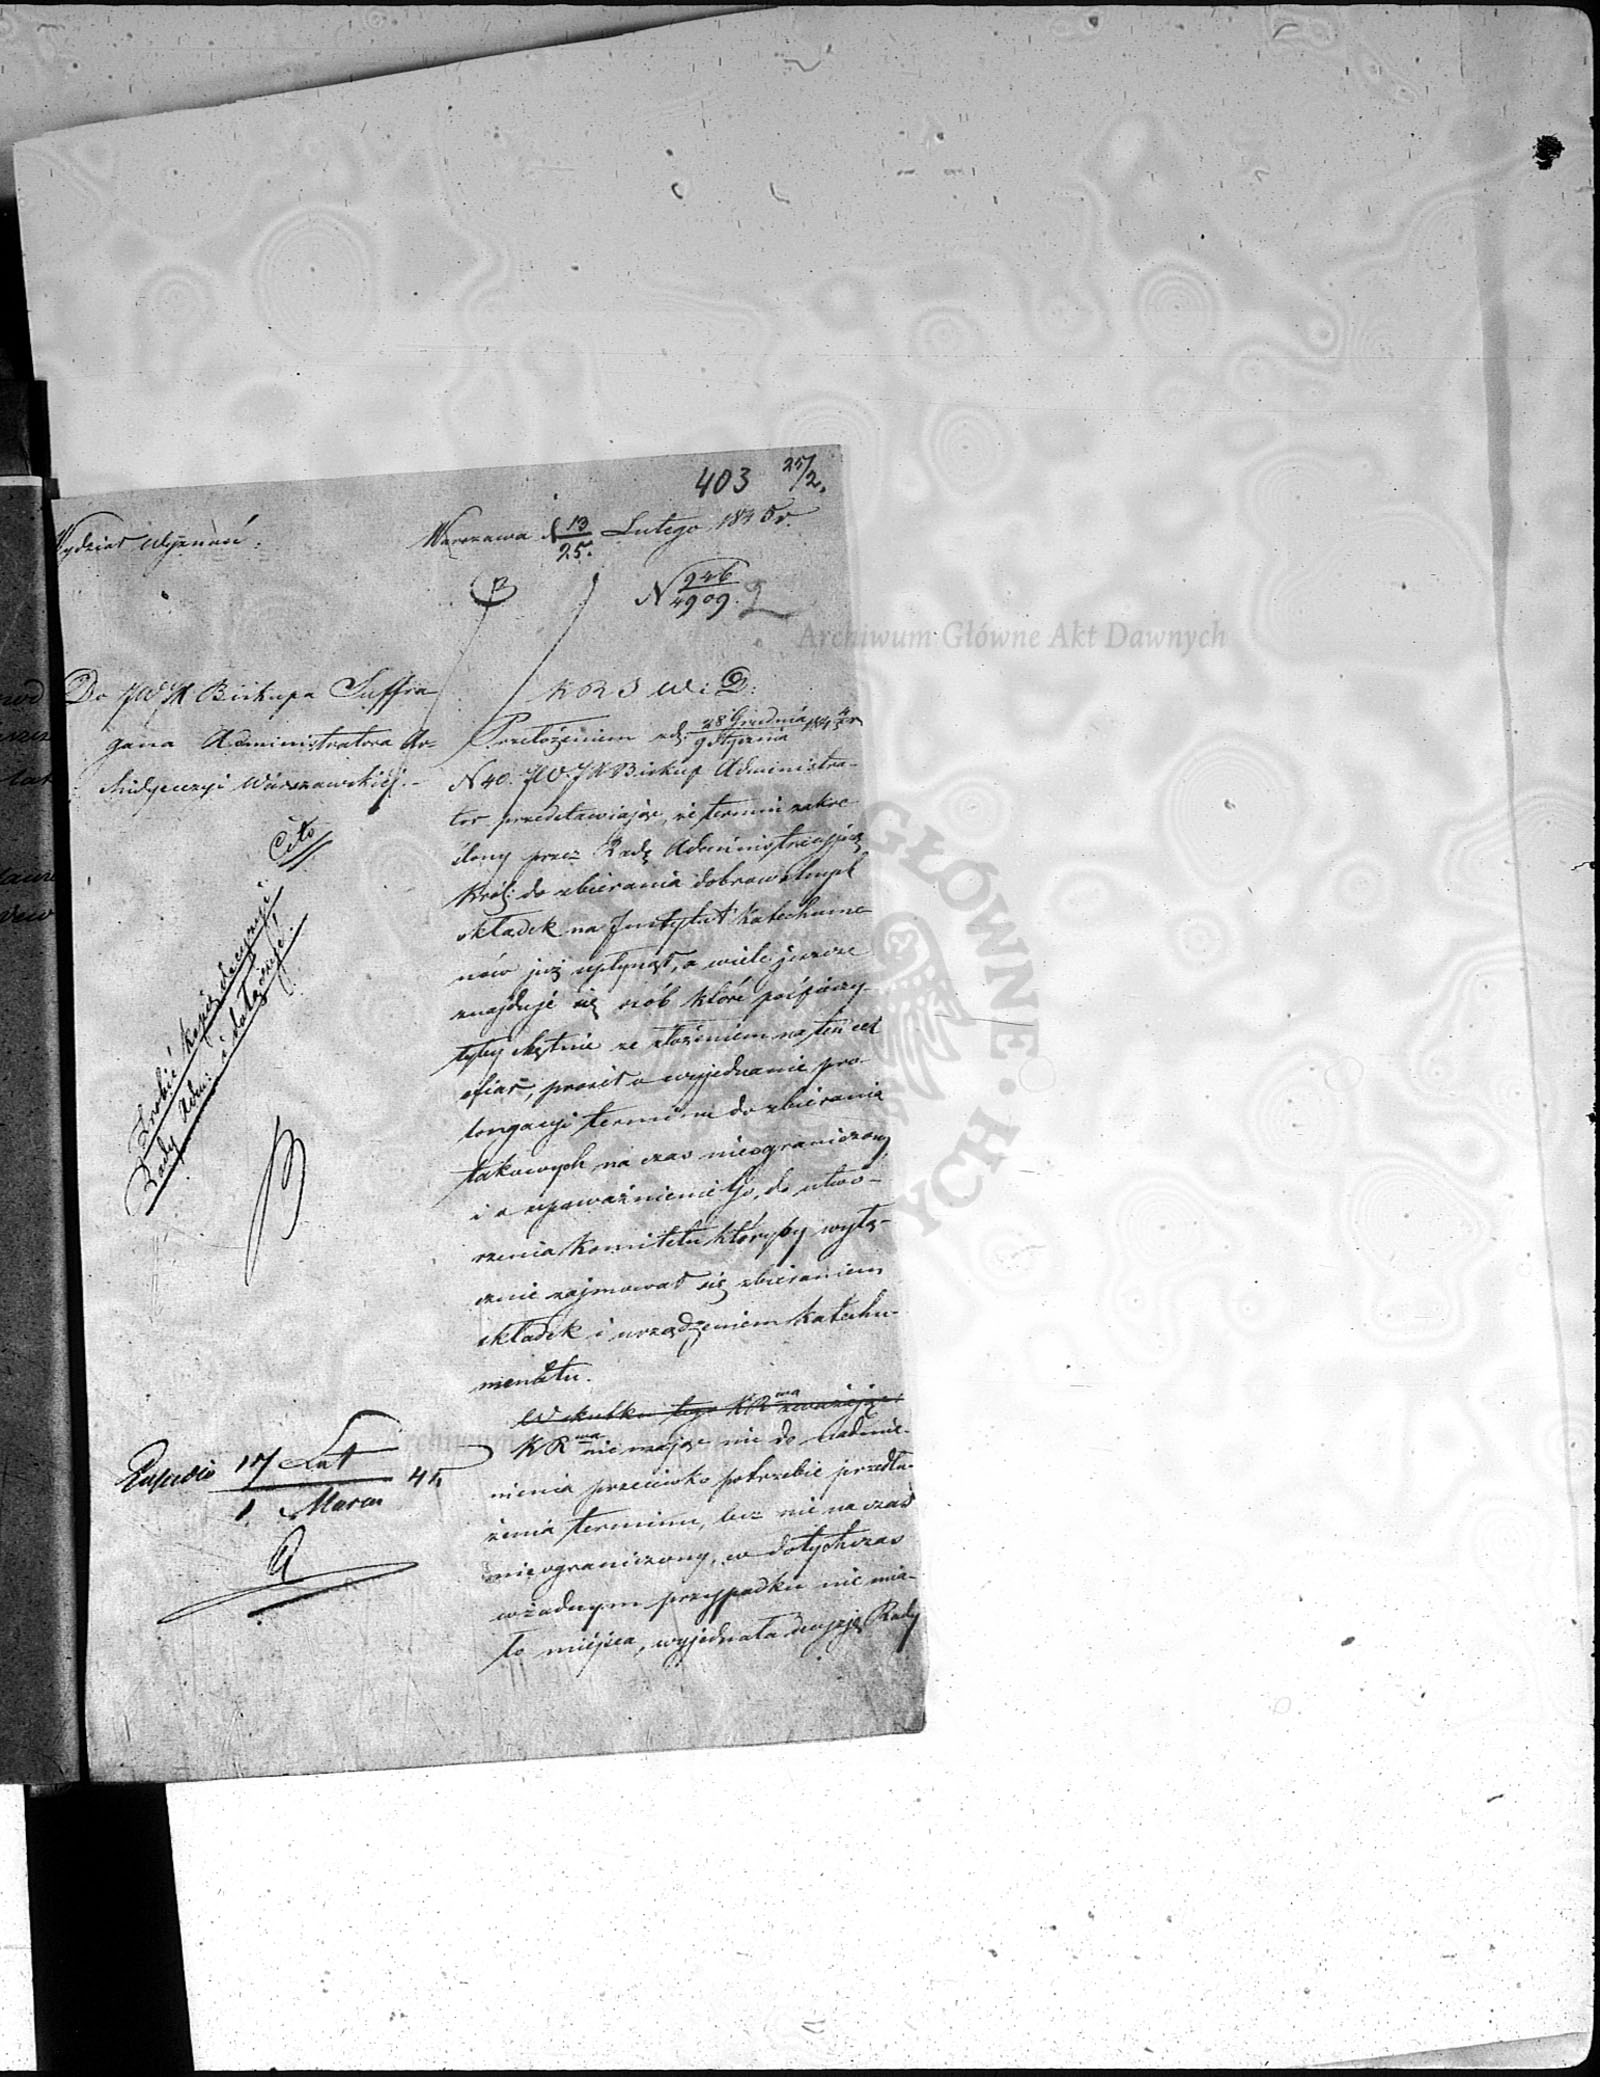 403 25/2.
Wydział Wyznań:
Warszawa d 13/25. Lutego 1845 r.
N 246/4909. 2
Archiwum Główne Akt Dawnych
Do JW JX Biskupa Suffra
gana Administratora Ar=
chidyecezyi Warszawskiéj.-
Cito
Zrobić kopię decyzyi
Rady Adm: i dołączyć!
17 Lut
1 Marca 45
K R S W i D:
Przełożeniem z d. 28 Grudnia/9 Stycznia 184 4/5 r
N 40. JW. JX Biskup Administra-
tor przedstawiając, że termin zakre
ślony przez Radę Administracyjną
Król: do zbierania dobrowolnych
składek na Instytut Katechume-
nów już upłynął, a wiele jeszcze
znajduje się osób które pośpieszy-
łyby chętnie ze złożeniem na ten cel
ofiar, prosił o wyjednanie pro-
longacyi terminu do zbierania
takowych na czas nieograniczony
i o upoważnienie Go, do utwo-
rzenia Komitetu któryby wyłą-
cznie zajmował się zbieraniem
składek i urządzeniem Katechu-
menatu.
W skutku tego KRssa zważając
KRssa nie mając nic do nadmie-
nienia przeciwko potrzebie przedłu-
żenia terminu, lecz nie na czas
nieograniczony, co dotychczas
w żadnym przypadku nie mia-
ło miejsca, wyjednała decyzję Rady
GŁÓWNE